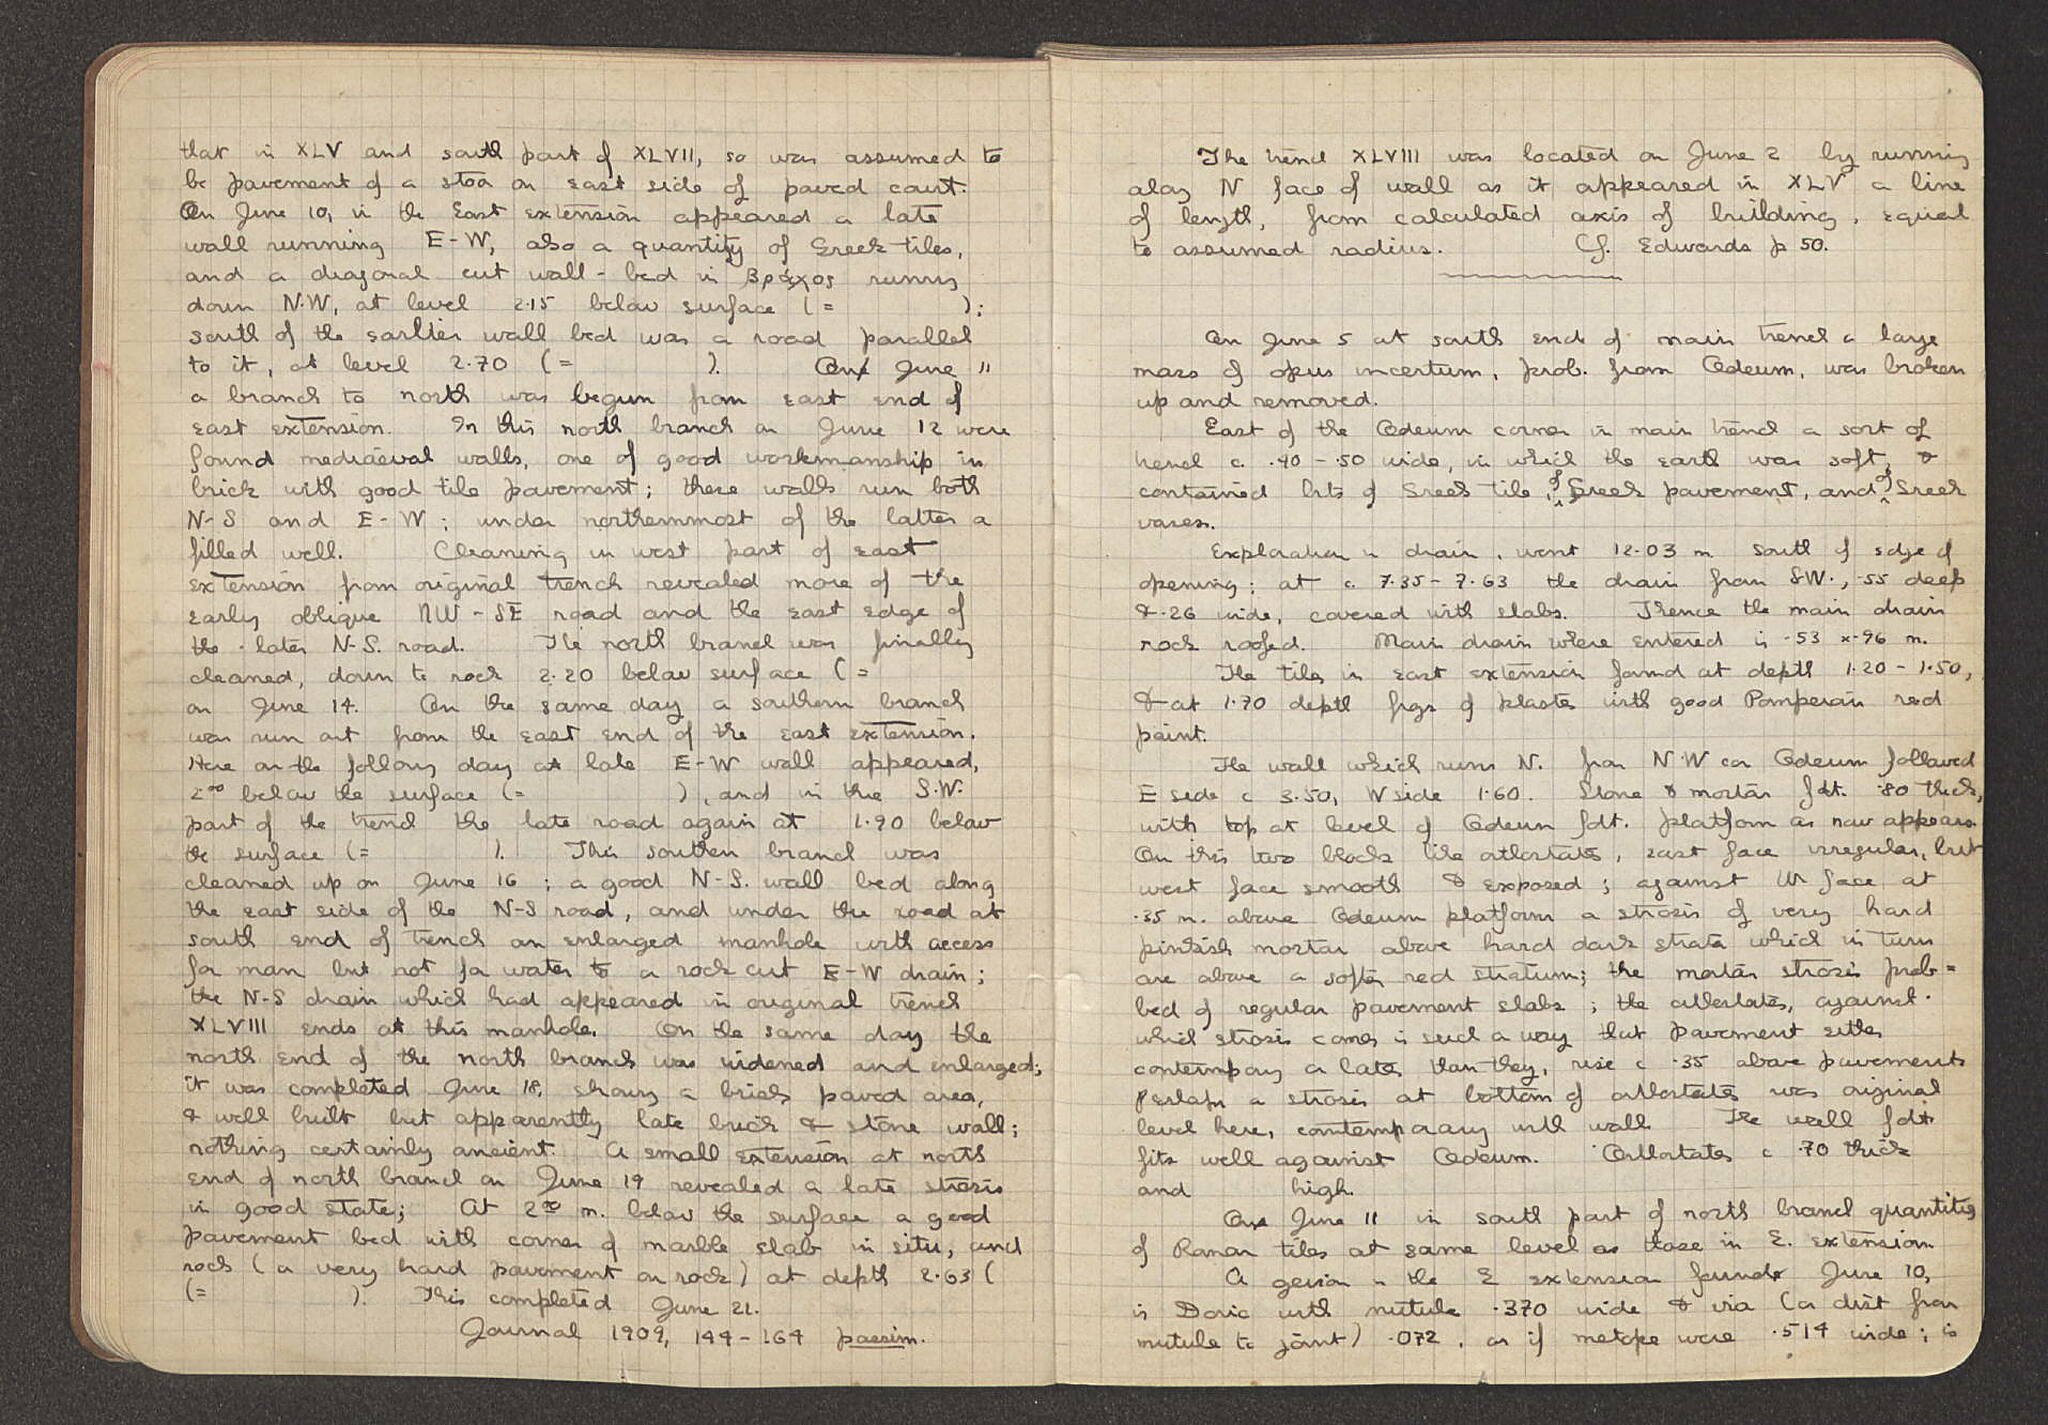 that in XLV and south part of XLVII, so was assumed to
be pavement of a stoa on east side of paved court.
On June 10, in the East extension appeared a late
wall running E-W, also a quantity of Greek tiles,
and a diagonal cut wall-bed in βράχος running
down N.W, at level 2.15 below surface (= );
south of the earlier wall bed was a road parallel
to it, at level 2.70 (= ). On June 11
a branch to north was begun from east end of
east extension. In this north branch on June 12 were
found mediaeval walls, one of good workmanship in
brick with good tile pavement; these walls run both
N-S and E-W; under northernmost of the latter a
filled well. Cleaning in west part of east
extension from original trench revealed more of the
early oblique NW-SE road and the east edge of
the later N-S. road. The north branch was finally
cleaned, down to rock 2.20 below surface (=
on June 14. On the same day a southern branch
was run out from the east end of the east extension.
Here on the following day a late E-W wall appeared,
2.00 below the surface (= ), and in the S.W.
part of the trench the late road again at 1.90 below
the surface (= ). This southern branch was
cleaned up on June 16; a good N-S. wall bed along
the east side of the N-S road, and under the road at
south end of trench an enlarged manhole with access
for man but not for water to a rock cut E-W drain;
the N-S drain which had appeared in original trench
XLVIII ends at this manhole. On the same day the
north end of the north branch was widened and enlarged;
it was completed June 18, showing a brick paved area,
& well built but apparently late brick & stone wall;
nothing certainly ancient. A small extension at north
end of north branch on June 19 revealed a late strosis
in good state; At 2.00 m. below the surface a good
pavement bed with corner of marble slab in situ, and
rock (a very hard pavement on rock) at depth 2.63 (
(= ). This completed June 21.
Journal 1909, 144-164 passim.
The trench XLVIII was located on June 2 by running
along N face of wall as it appeared in XLV a line
of length, from calculated axis of building, equal
to assumed radius. Cf. Edwards p 50.
On June 5 at south end of main trench a large
mass of opus incertum, prob. from Odeum, was broken
up and removed.
East of the Odeum corner in main trench a sort of
trench c. .40-.50 wide, in which the earth was soft, &
contained bits of Greek tile, of Greek pavement, and of Greek
vases.
Exploration in drain, went 12.03 m south of edge of
opening; at c. 7.35-7.63 the drain from SW., .55 deep
& .26 wide, covered with slabs. Thence the main drain
rock roofed. Main drain where entered is .53 x .96 m.
The tiles in east extension found at depth 1.20-1.50,
& at 1.70 depth frgs of plaster with good Pompeian red
paint.
The wall which runs N. from N.W cor Odeum followed
E side c 3.50, W side 1.60. Stone & mortar fdt. .80 thick,
with top at level of Odeum fdt. platform as now appears.
On this two blocks like orthostates, east face irregular, but
west face smooth & exposed; against W face at
.35 m. above Odeum platform a strosis of very hard
pinkish mortar above hard dark strata which in turn
are above a softer red stratum; the mortar strosis prob =
bed of regular pavement slabs; the orthostates, against
which strosis comes in such a way that pavement either
contemporary or later than they, rise c .35 above pavements
Perhaps a strosis at bottom of orthostates was original
level here, contemporary with wall. The wall fdt.
fits well against Odeum. Orthostates c .70 thick
and high.
On June 11 in south part of north branch quantities
of Roman tiles at same level as those in E. extension
A geison in the E extension found June 10,
is Doric with mutule .370 wide & via (or dist from
mutule to joint) .072, as if metope were .514 wide; is